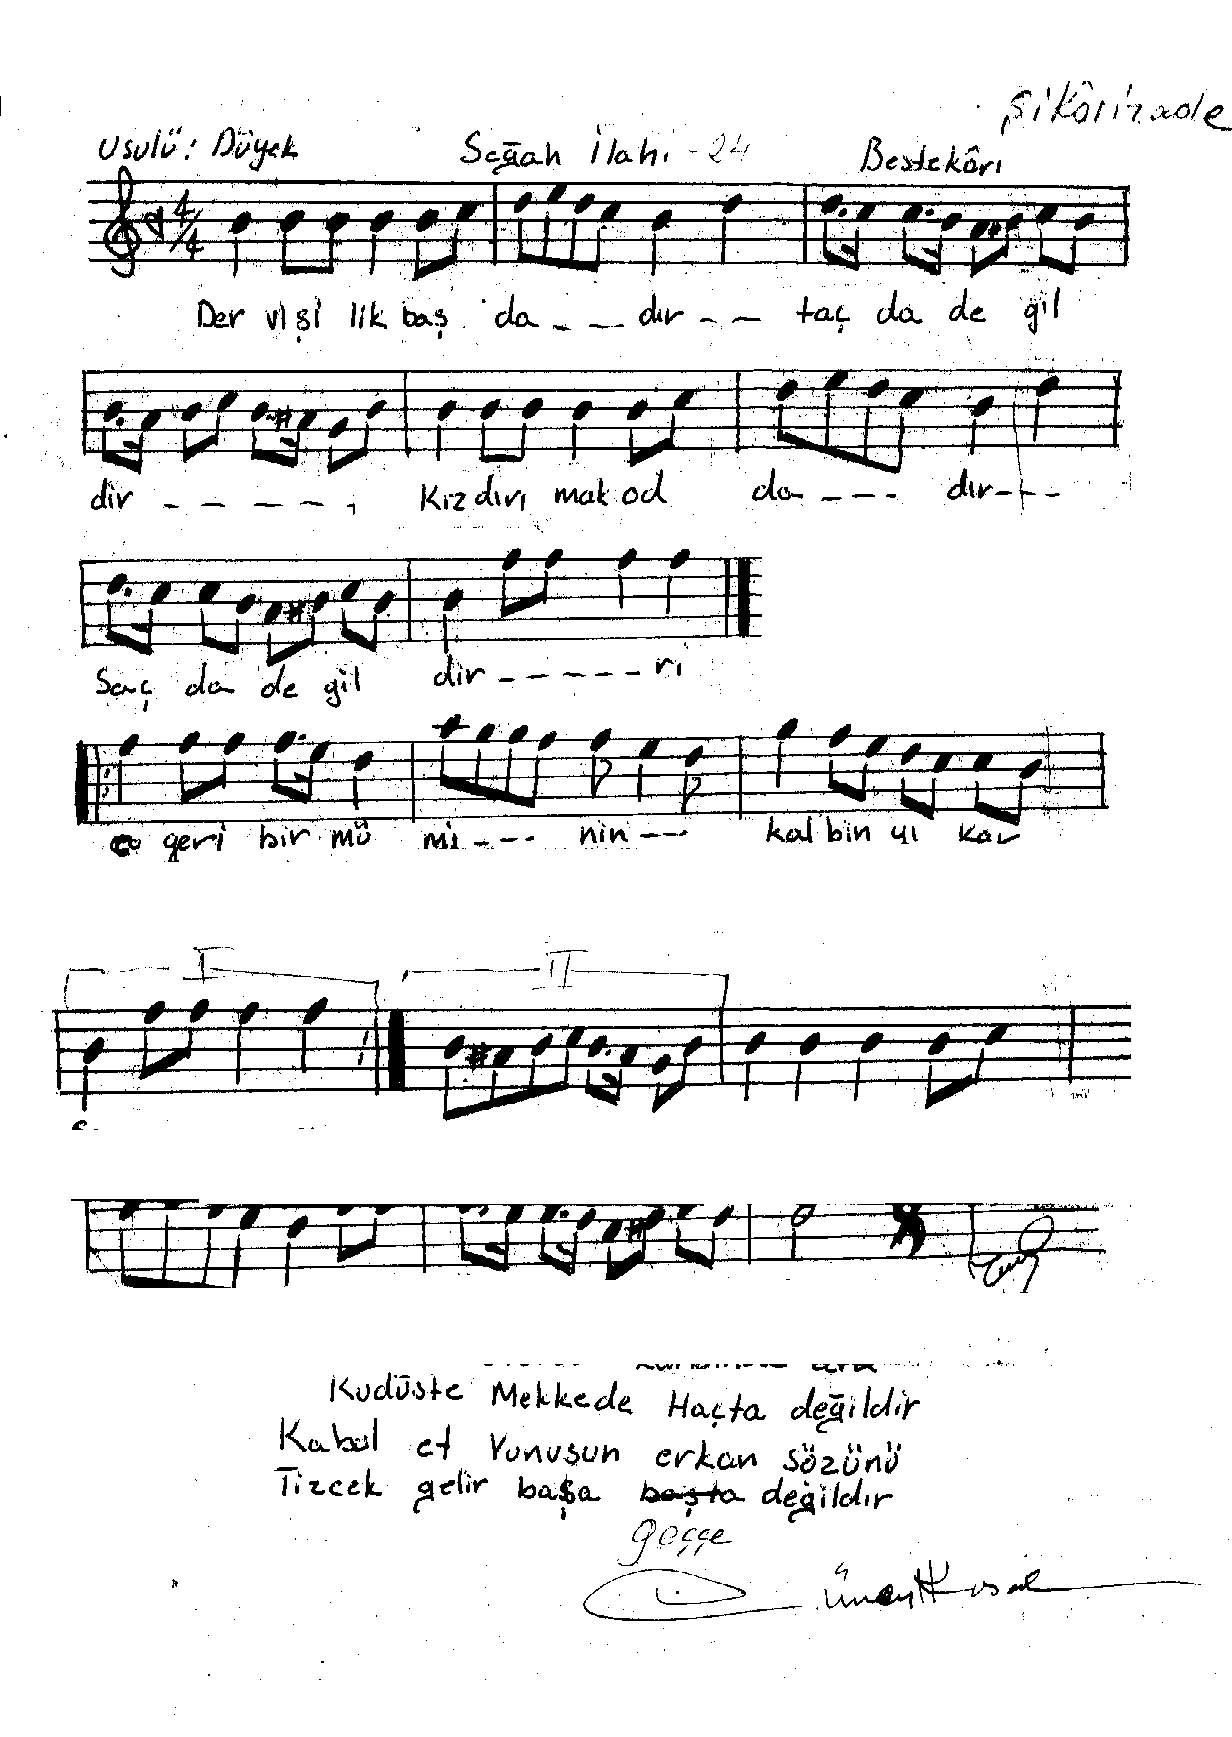 Şikârizade
Usulü: Düyek Segâh İlahi - 24 Bestekârı
4/4
Der vişi lik baş da - - - dır - - taç da de ğil
dir - - - - - , Kız dırı mak od da - - - - dır - - -
Saç da de ğil dir - - - - - - rı
e geri bir mü mi - - - nin - - kal bin yı kar
I II
Kudüste Mekkede Haçta değildir
Kabul et Yunusun erkan sözünü
Tizcek gelir başa başta değildir
geççe